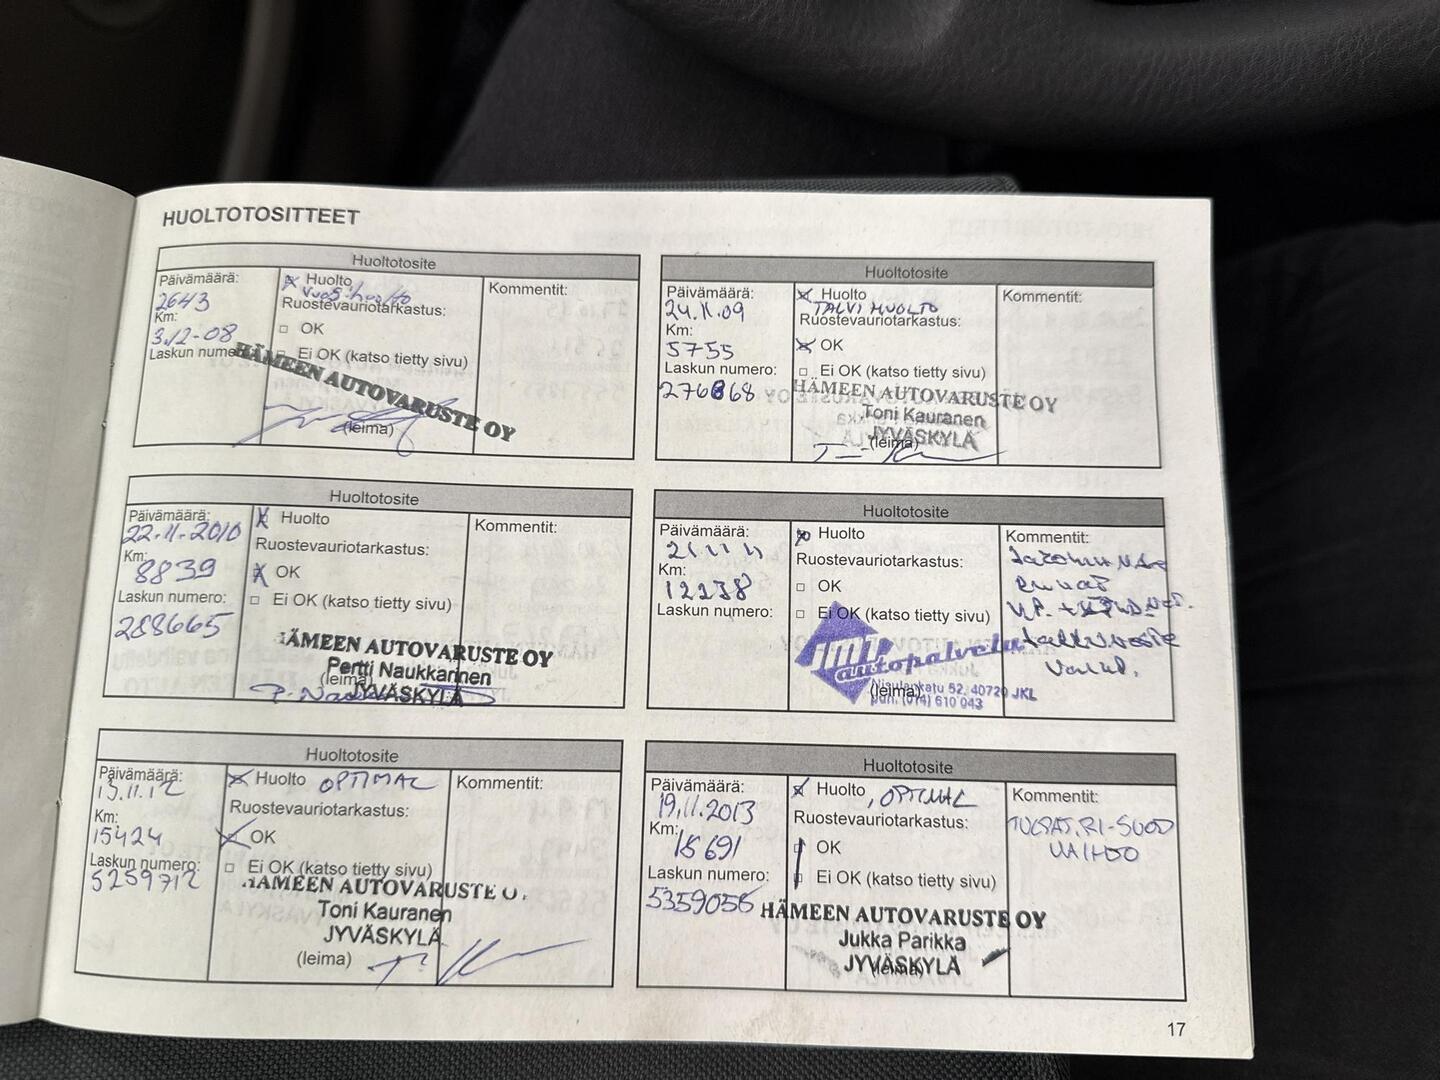 HUOLTOTOSITTEET
Huoltotosite
Päivämäärä:
2643
Km:
3.12-08
Laskun nume
Huolto
vuosihuolto
Ruostevauriotarkastus:
OK
Ei OK (katso tietty sivu)
HÄMEEN AUTOVARUSTE OY
(leima)
Kommentit:
Huoltotosite
Päivämäärä:
24.11.09
Km:
5755
Laskun numero:
276868
Huolto
TALVI HUOLTO
Ruostevauriotarkastus:
OK
Ei OK (katso tietty sivu)
HÄMEEN AUTOVARUSTE OY
Toni Kauranen
JYVÄSKYLÄ
(leima)
Kommentit:
Huoltotosite
Päivämäärä:
22.11-2010
Km:
8839
Laskun numero:
288665
Huolto
Ruostevauriotarkastus:
OK
Ei OK (katso tietty sivu)
HÄMEEN AUTOVARUSTE OY
Pertti Naukkarinen
(leima)
JYVÄSKYLÄ
Kommentit:
Huoltotosite
Päivämäärä:
21.11.11
Km:
12238
Laskun numero:
Huolto
Ruostevauriotarkastus:
OK
Ei OK (katso tietty sivu)
autopalvelu
Nisulankatu 52, 40720 JKL
(leima)
puh. (014) 610 043
Kommentit:
Huoltotosite
Päivämäärä:
13.11.12
Km:
15424
Laskun numero:
5259712
Huolto OPTIMAL
Ruostevauriotarkastus:
OK
Ei OK (katso tietty sivu)
HÄMEEN AUTOVARUSTE O
Toni Kauranen
JYVÄSKYLÄ
(leima)
Kommentit:
Huoltotosite
Päivämäärä:
19.11.2013
Km:
18691
Laskun numero:
5359056
Huolto, OPTIMAL
Ruostevauriotarkastus:
OK
Ei OK (katso tietty sivu)
HÄMEEN AUTOVARUSTE OY
Jukka Parikka
JYVÄSKYLÄ
(leima)
Kommentit:
VAIHTO
17